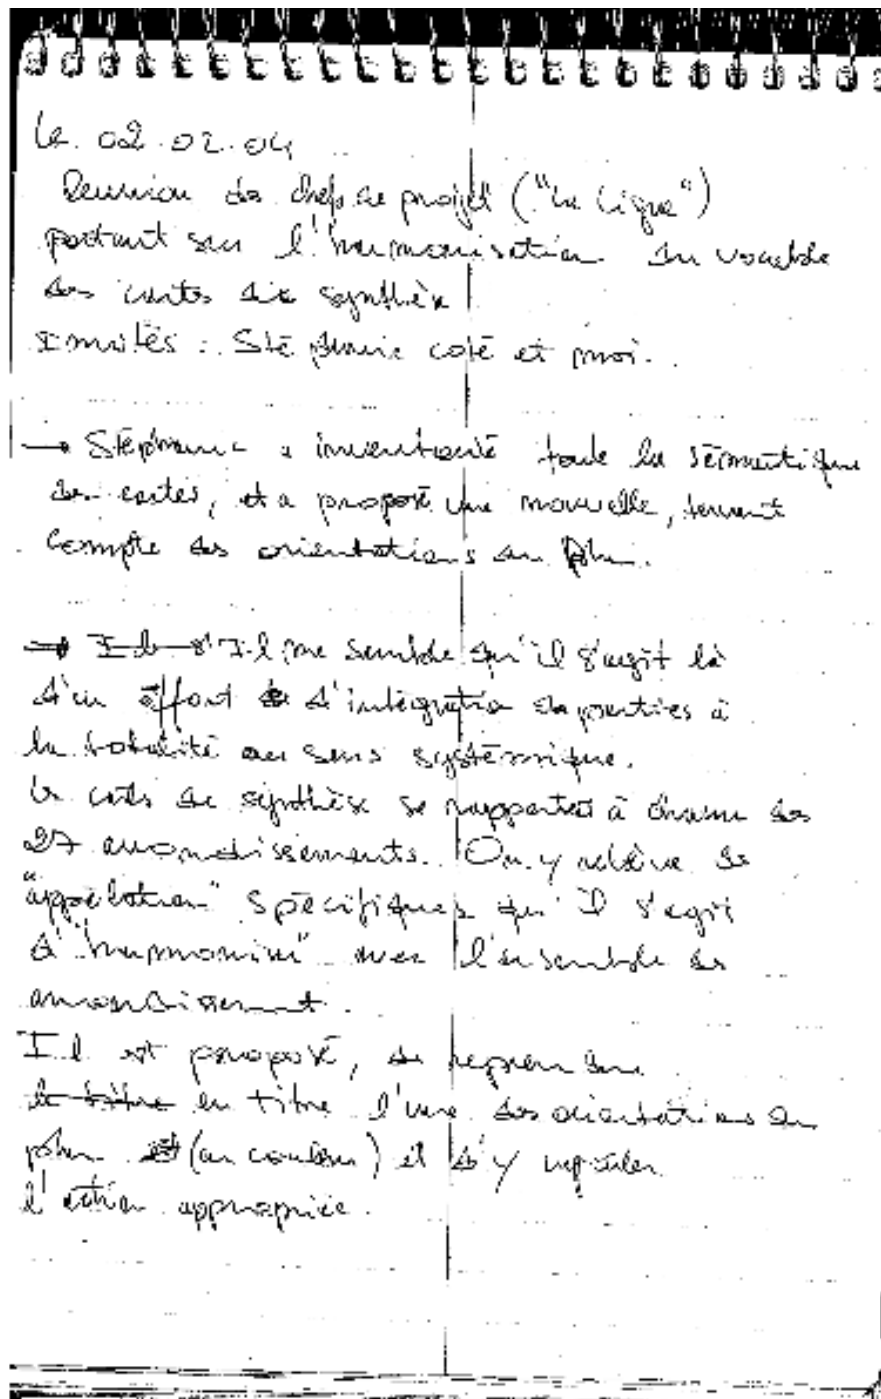 Le 02.02.04
Réunion des chefs de projet ("la ligne")
portant sur l'harmonisation du vocable
des cartes de synthèse
Invités : Stéphanie côté et moi.
→ Stéphanie a inventorié toute la sémantique
des cartes, et a proposé une nouvelle, tenant
compte des orientations du plan.
→ Il s' Il me semble qu'il s'agit là
d'un effort de d'intégration des parties à
la totalité au sens systémique.
les cartes de synthèse se rapportent à chacun des
27 arrondissements. On y relève des
"appélation" spécifiques qu'il s'agit
d'"harmoniser" avec l'ensemble des
arrondissement.
Il est proposé, de reprendre
le titre en titre l'une des orientations du
plan et (en couleur) et d'y
l'action appropriée.